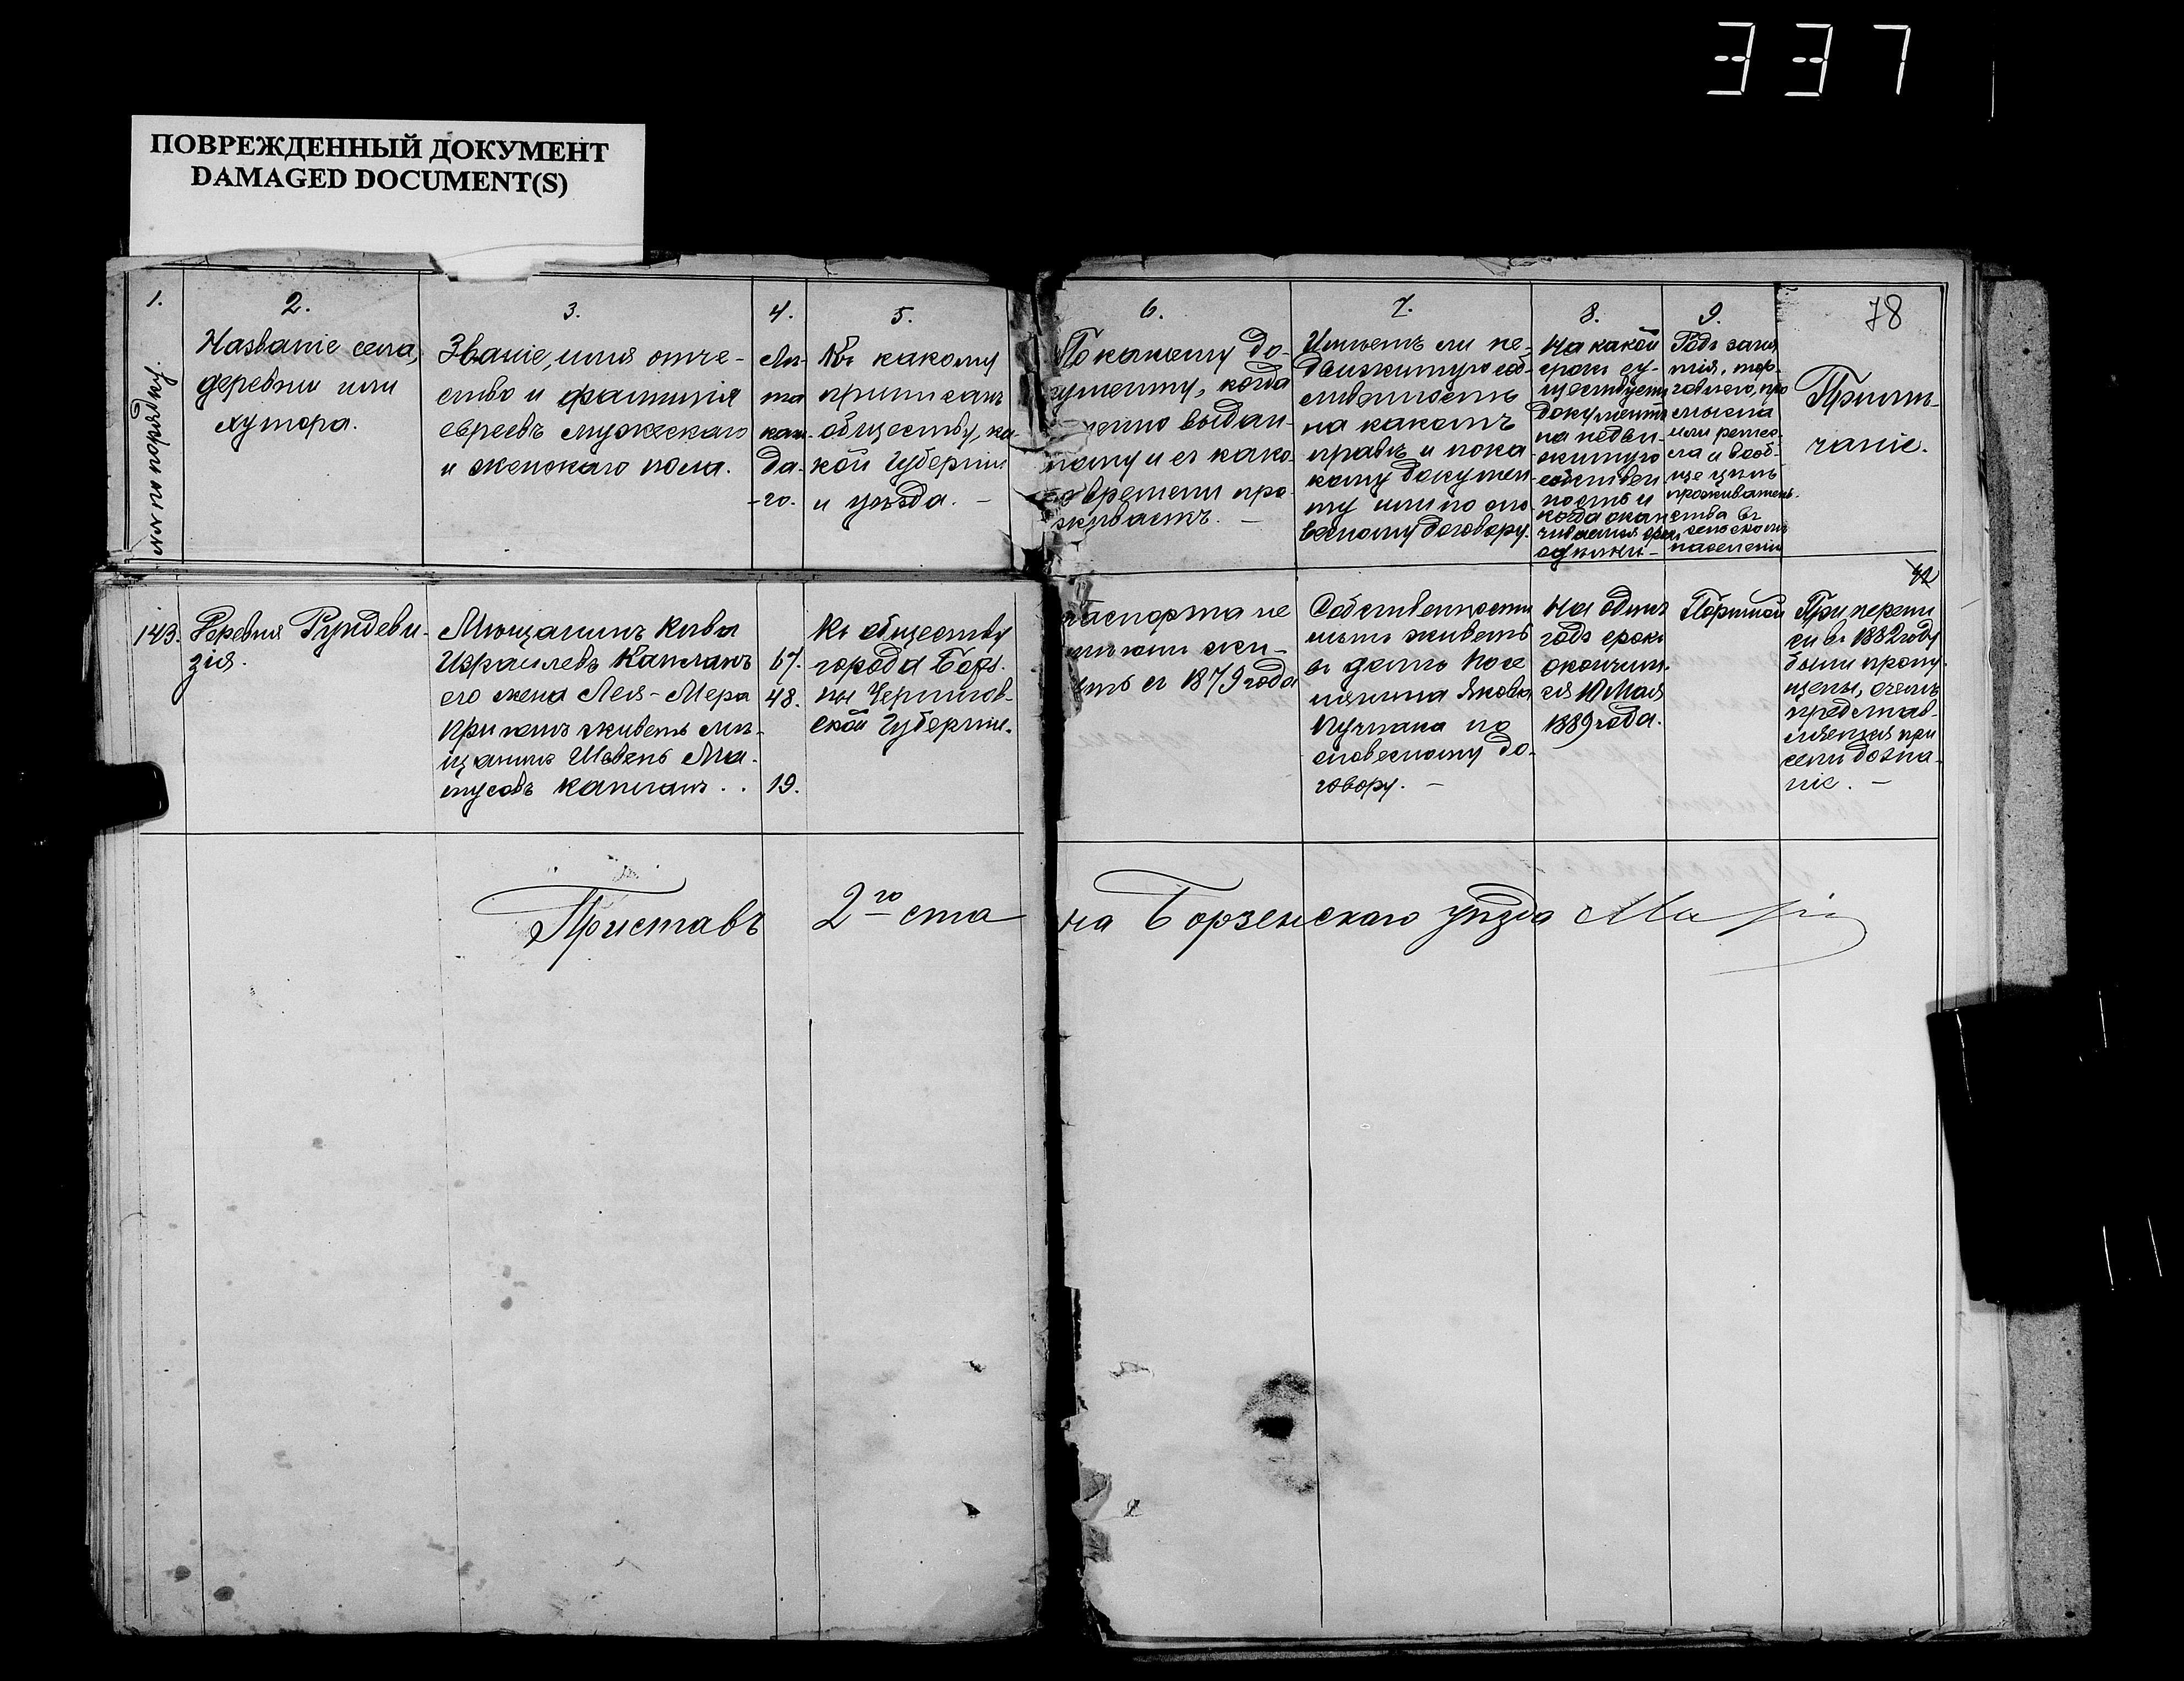 337
ПОВРЕЖДЕННЫЙ ДОКУМЕНТ
DAMAGED DOCUMENT(S)
1.
по порядку.
2.
Названіе села,
деревни или
хутора.
3.
Званіе, имя отче-
ство и фамилія
евреевъ мужескаго
и женскаго пола.
4.
Лѣ-
та
каж-
да-
-го.
5.
Къ какому
приписанъ
обществу, ка-
кой губерніи
и уѣзда. -
6.
По какому до-
кументу, когда
выдан-
ному и съ како-
го времени про-
живаетъ. -
7.
Имѣетъ ли не-
движимую соб-
ственность
на какомъ
правѣ и по ка
кому докумен
ту или по сло-
весному договору.
8.
На какой
срокъ су-
ществуетъ
документъ
на недви-
жимую
собствен
ность и
когда окан
чивается срокъ
9.
Родъ заня
тія, тор-
говлею, про
мысла
или ремес-
ла и вооб-
ще цѣль
проживатель-
ства въ
сельскомъ
населеніи
78
Примѣ-
чаніе.
42
143.
Деревня Рундеви-
зія.
Мѣщанинъ Кива
Израилевъ Капланъ
его жена Лея-Мера
при немъ живетъ мѣ-
щанинъ Шевель
Капланъ . .
67.
48.
19.
Къ обществу
города Борз-
ны Чернигов-
ской Губерніи.
паспорта не
имѣютъ жи-
вутъ съ 1879 года
Собственности
нѣтъ живетъ
въ домѣ посе
Якова
по
словесному до-
говору. -
На одинъ
годъ срокъ
окончит.
ся 10 Мая
1889 года.
Портной
При перепи
си въ 1882 году
были пропу-
щены, о чемъ
представ-
ляется при
семъ дозна-
ніе. -
Приставъ 2го ста
на Борзенскаго уѣзда